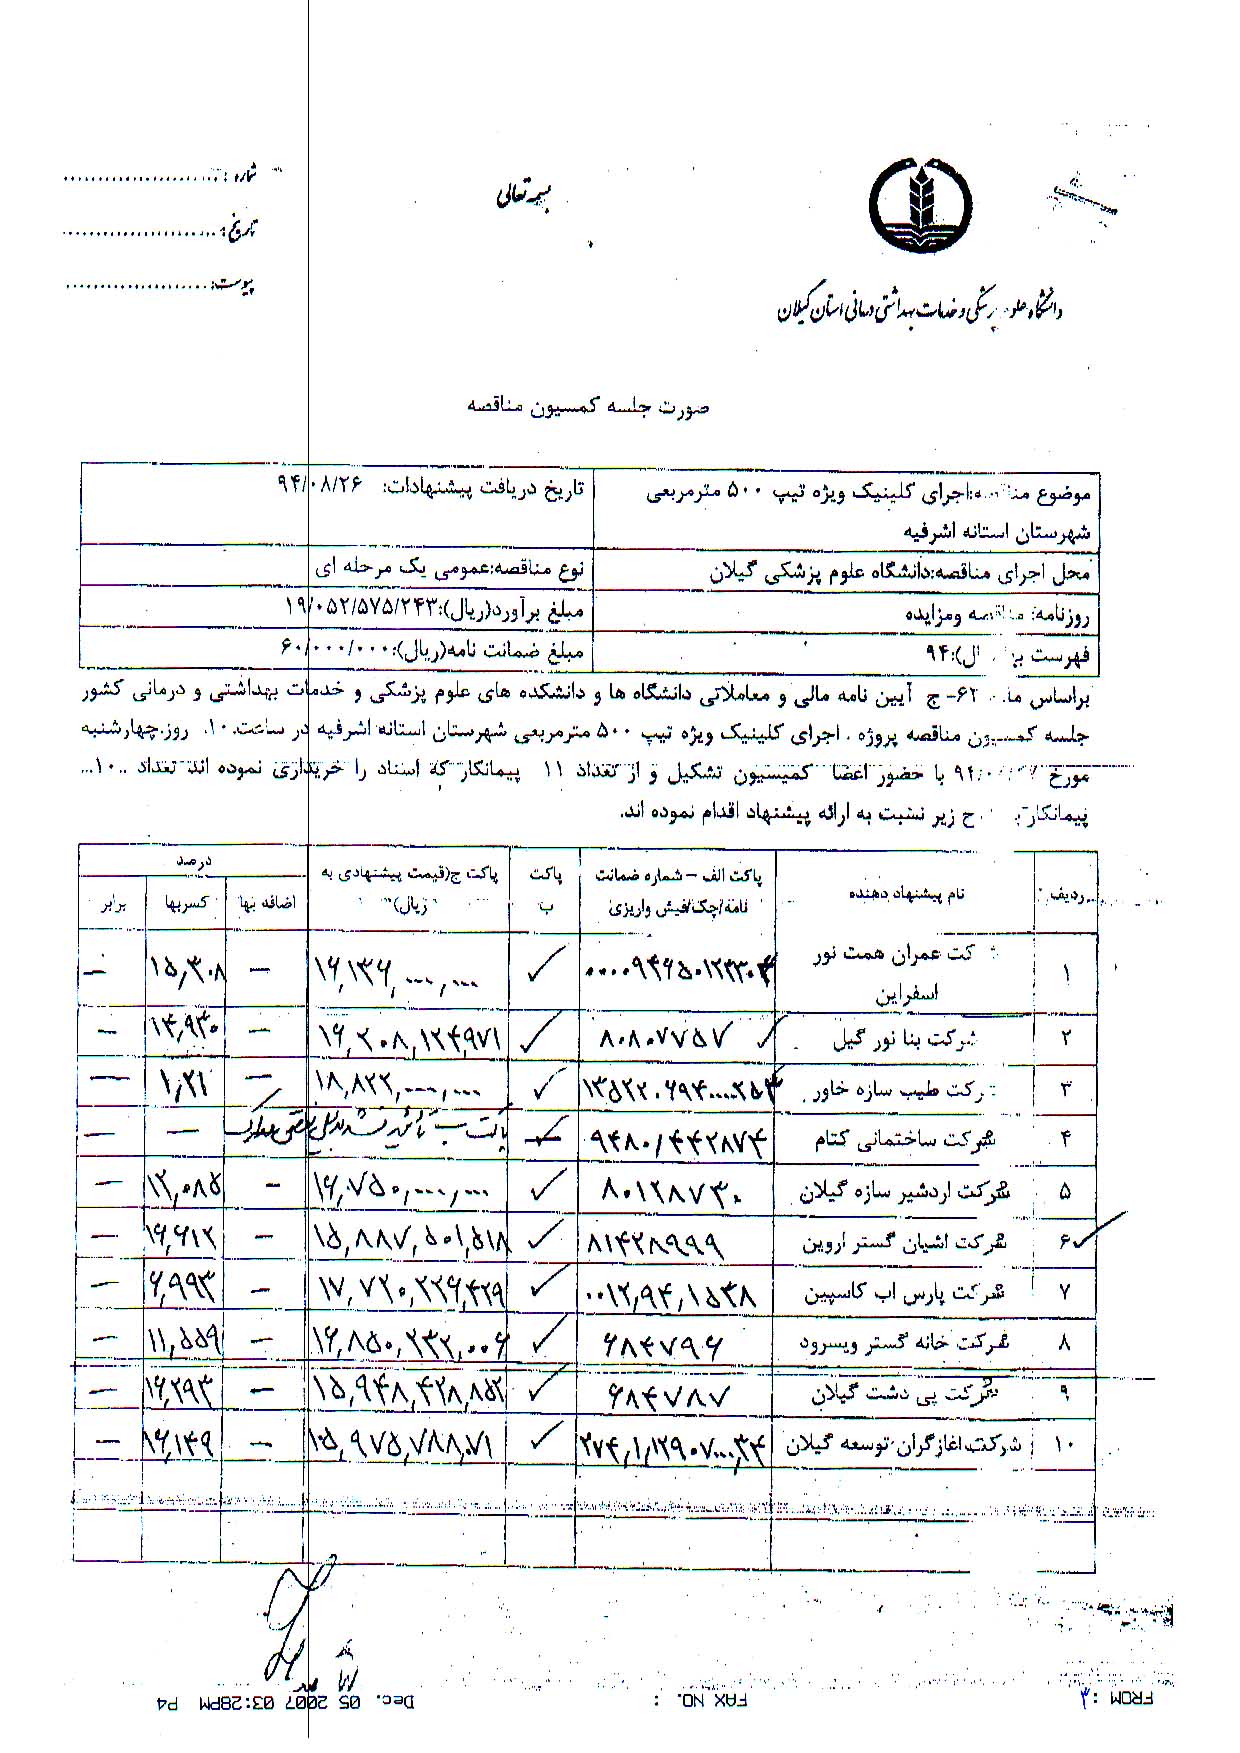 شماره :
بسمه تعالی
تاریخ :
پیوست:
دانشگاه علوم پزشکی و خدمات بهداشتی درمانی استان گیلان
صورت جلسه کمسیون مناقصه
موضوع مناقصه:اجرای کلینیک ویژه تیپ ۵۰۰ مترمربعی شهرستان استانه اشرفیه
تاریخ دریافت پیشنهادات: ۹۴/۰۸/۲۶
محل اجرای مناقصه:دانشگاه علوم پزشکی گیلان
نوع مناقصه:عمومی یک مرحله ای
روزنامه: مناقصه ومزایده
مبلغ برآورد(ریال):۱۹/۰۵۲/۵۷۵/۲۴۳
فهرست ل):۹۴
مبلغ ضمانت نامه(ریال):۶۰/۰۰۰/۰۰۰
براساس ۶۲- ج آیین نامه مالی و معاملاتی دانشگاه ها و دانشکده های علوم پزشکی و خدمات بهداشتی و درمانی کشور
جلسه کمسیون مناقصه پروژه . اجرای کلینیک ویژه تیپ ۵۰۰ مترمربعی شهرستان استانه اشرفیه در ساعت.۱۰. روز.چهارشنبه
مورخ با حضور اعضا کمیسیون تشکیل و از تعداد ۱۱ پیمانکار که اسناد را خریداری نموده اند تعداد ..۱۰...
زیر نسبت به ارائه پیشنهاد اقدام نموده اند.
ردیف نام پیشنهاد دهنده پاکت الف – شماره ضمانت نامه/چک/فیش واریزی پاکت ب پاکت ج(قیمت پیشنهادی به ریال) درصد
اضافه بها کسربها برابر
۱ کت عمران همت نور اسفراین ✓ ۱۶,۱۳۶,۰۰۰,۰۰۰ – ۱۵,۳۰۸ –
۲ شرکت بنا نور گیل ۸۰۸۰۷۷۵۷ ✓ ۱۶,۲۰۸,۱۲۴,۹۷۱ – ۱۴,۹۳۰ –
۳ رکت طیب سازه خاور ✓ ۱۸,۸۲۲,۰۰۰,۰۰۰ – ۱,۲۱ –
۴ شرکت ساختمانی کتام ۹۴۸۰/۴۴۲۸۷۴ پاکت ب تأئید نشد بدلیل نقص مدارک – –
۵ شرکت اردشیر سازه گیلان ۸۰۱۲۸۷۳۰ ✓ ۱۶,۷۵۰,۰۰۰,۰۰۰ – ۱۲,۰۸۵ –
۶ ✓ شرکت اشیان گستر اروین ۸۱۴۲۸۹۹۹ ✓ ۱۵,۸۸۷,۵۰۱,۵۱۸ – ۱۶,۶۱۲ –
۷ شرکت پارس اب کاسپین ۰۰۱۲,۹۴,۱۵۳۸ ✓ ۱۷,۷۲۰,۲۲۶,۴۲۹ – ۶,۹۹۳ –
۸ شرکت خانه گستر ویسرود ۶۸۴۷۹۶ ✓ ۱۶,۸۵۰,۲۳۲,۰۰۶ – ۱۱,۵۵۹ –
۹ شرکت پی دشت گیلان ۶۸۴۷۸۷ ✓ ۱۵,۹۴۸,۴۲۸,۸۵۲ – ۱۶,۲۹۳ –
۱۰ شرکت اغازگران توسعه گیلان ✓ ۱۵,۹۷۵,۷۸۸,۰۷۱ – ۱۶,۱۴۹ –
FROM : FAX NO. : Dec. 05 2007 03:28PM P4